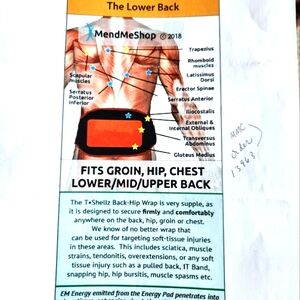 The Lower Back
MendMeShop © 2018
Trapezius
Rhomboid
muscles
Latissimus
Dorsi
Erector Spinae
Serratus Anterior
Iliocostalis
External &
Internal Obliques
Transversus
Abdominus
Gluteus Medius
Scapular
muscles
Serratus
Posterior
Inferior
FITS GROIN, HIP, CHEST
LOWER/MID/UPPER BACK
The T•Shellz Back-Hip Wrap is very supple, as
it is designed to secure firmly and comfortably
anywhere on the back, hip, groin or chest.
We know of no better wrap that
can be used for targeting soft-tissue injuries
in these areas. This includes sciatica, muscle
strains, tendonitis, overextensions, or any soft
tissue injury such as a pulled back, IT Band,
snapping hip, hip bursitis, muscle spasms etc.
EM Energy emitted from the Energy Pad penetrates into
order